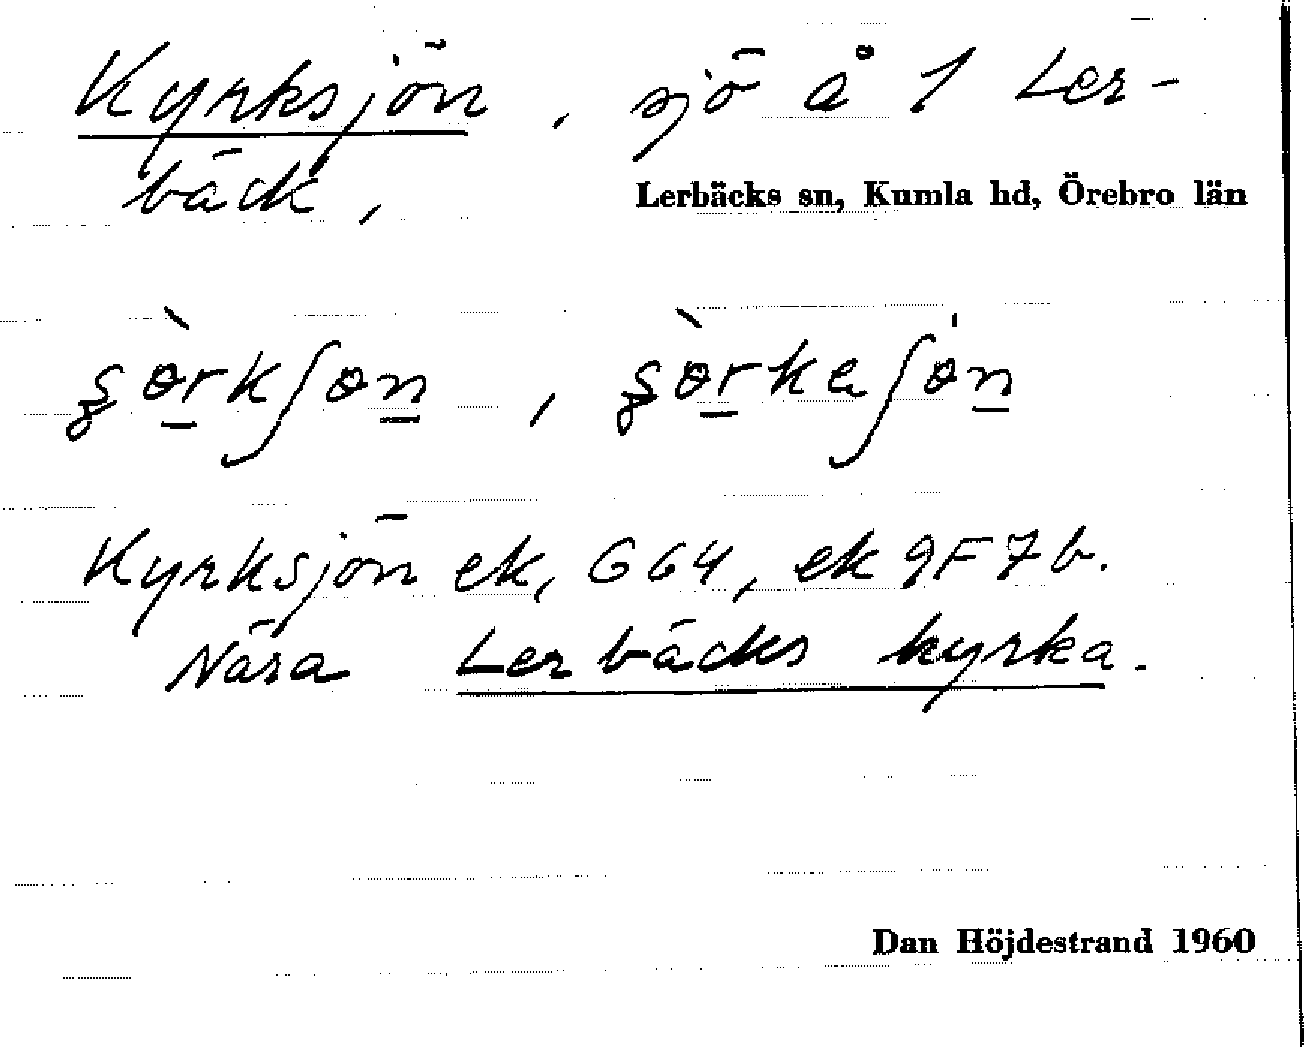 Kyrksjön, sjö å 1 Ler-
bäck,
Lerbäcks sn, Kumla hd, Örebro län
Kyrksjön ek, G64, ek 9F7b.
Nära Lerbäcks kyrka.
Dan Höjdestrand 1960